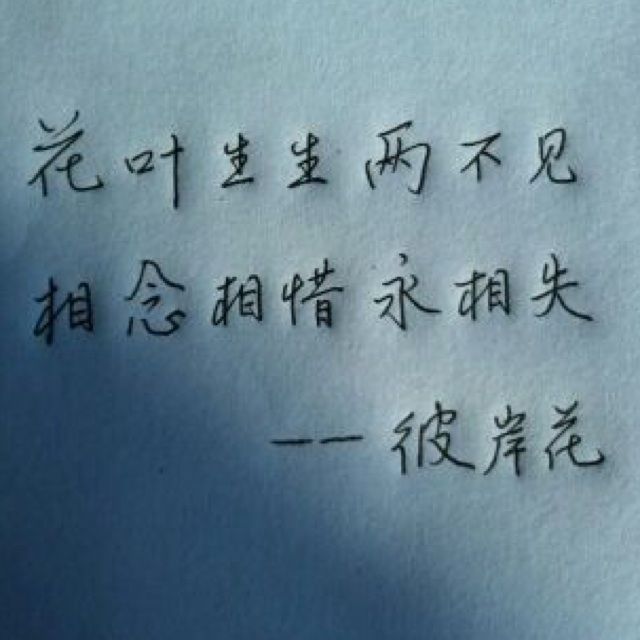 花叶生生两不见
相念相惜永相失
——彼岸花